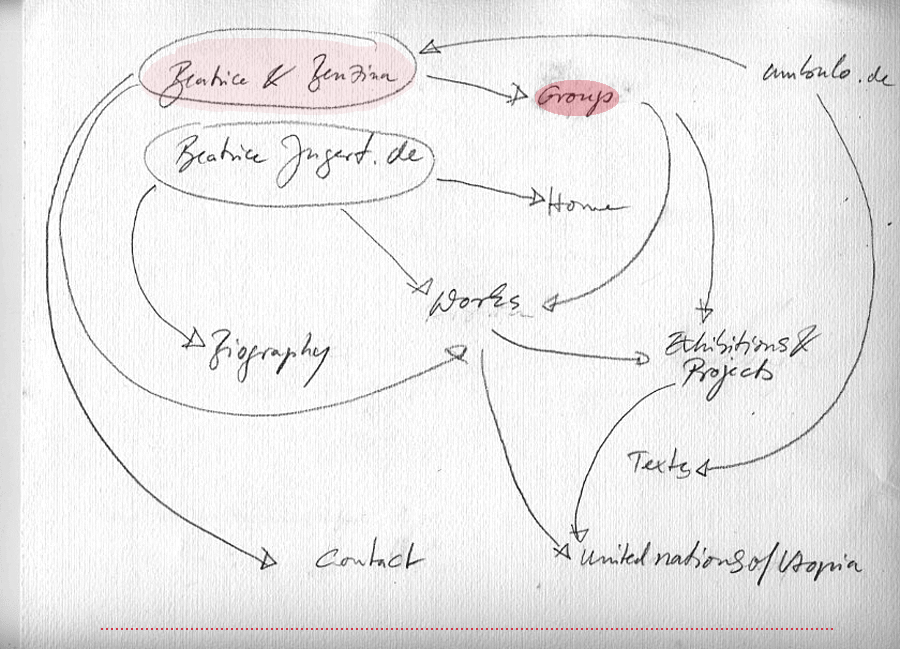 Beatrice & Benzina
ambulo.de
Group
Beatrice Jugert.de
Home
Works
Biography
Exhibitions &
Projects
Texts
Contact
united nations of Utopia